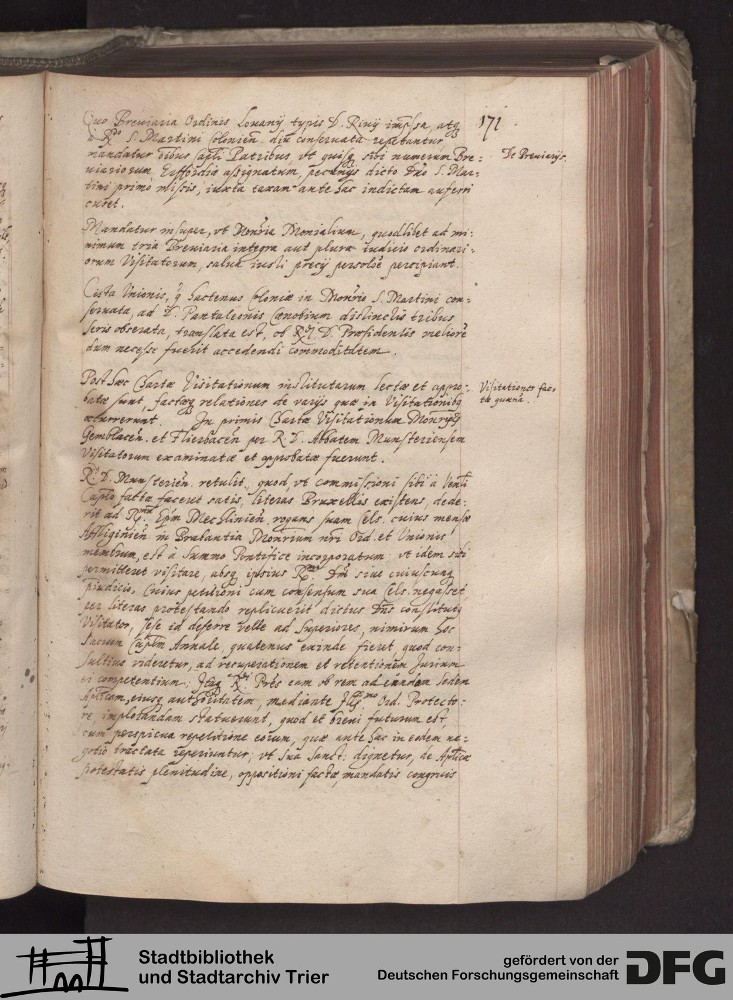 171
Quo Breviaria Ordinis Lovanÿ typis D. Rivÿ impssa, atq
à Rdo S. Martini Colonien. diu conservata repetantur,
mandatur oïbus capli Patribus, vt quisq sibi numerum Bre-
De Breviarÿs.
viariorum, Euffordiæ assignatum, pecunÿs dicto Dno S. Mar-
tini primò missis, iuxta taxam ante hac indictam auferri
curet.
Mandatur insuper, vt Monria Monialium, quodlibet ad mi-
nimum tria Breviaria integra aut plura iudicio ordinari-
orum Visitatorum, salua iusti precÿ persolõe percipiant.
Cista Vnionis, q hactenus Coloniæ in Monrio S. Martini con-
seruata, ad D. Pantaleonis cænobium distinctis tribus
seris obserata, translata est, ob Rmi. D. Præsidentis meliorē
dum necesse fuerit accedendi commoditatem.
Post hæc Chartæ Visitationum institutarum lectæ et appro-
Visitationes fac-
batæ sunt, factæq relationes de varÿs quæ in Visitationibq
tæ quædā.
occurrerunt. In primis Chartæ Visitationum Monrÿs
Gemblacen. et Flierbacen per R. D. Abbatem Munsteriensem
Visitatorum examinatæ et approbatæ fuerunt.
Rdus D. Munsterien. retulit, quod, vt commissioni sibi à Venli
Caplo factæ faceret satis, literas Bruxellis existens, dede-
rit ad Rmum Epm Mechlinien, rogans suam Cels. cuius mensæ
Affliginien in Brabantia Monrium nri Ord. et Vnionis
membrum, est à summo Pontifice incorporatum, vt idem sibi
permitteret visitare, absq ipsius Rmi Dni siue cuiuscunq
piudicio, Cuius petitioni cum consensum sua Cels. negasset
per literas protestando replicuerit dictus Dns constitutus
Visitator, sese id deferre velle ad Superiores, nimirum hoc
sacrum Caplm Annale, quatenus exinde fieret quod con-
sultius videretur, ad recuperationem et retentionem Jurium
ei competentium; Itaq Rdi Ptres eam ob rem ad eandem Sedem
Aplicam, eiusq authoritatem, mediante Illmo Ord. Protecto-
re, implorandam statuerunt, quod et breui futurum est,
cum perspicua repetitione eorum, quæ ante hac in eodem ne-
gotio tractata reperiuntur; vt sua Sanct: dignetur, de Aplicæ
potestatis plenitudine, oppositioni factæ, mandatis congruis
Stadtbibliothek
und Stadtarchiv Trier
gefördert von der
Deutschen Forschungsgemeinschaft
DFG